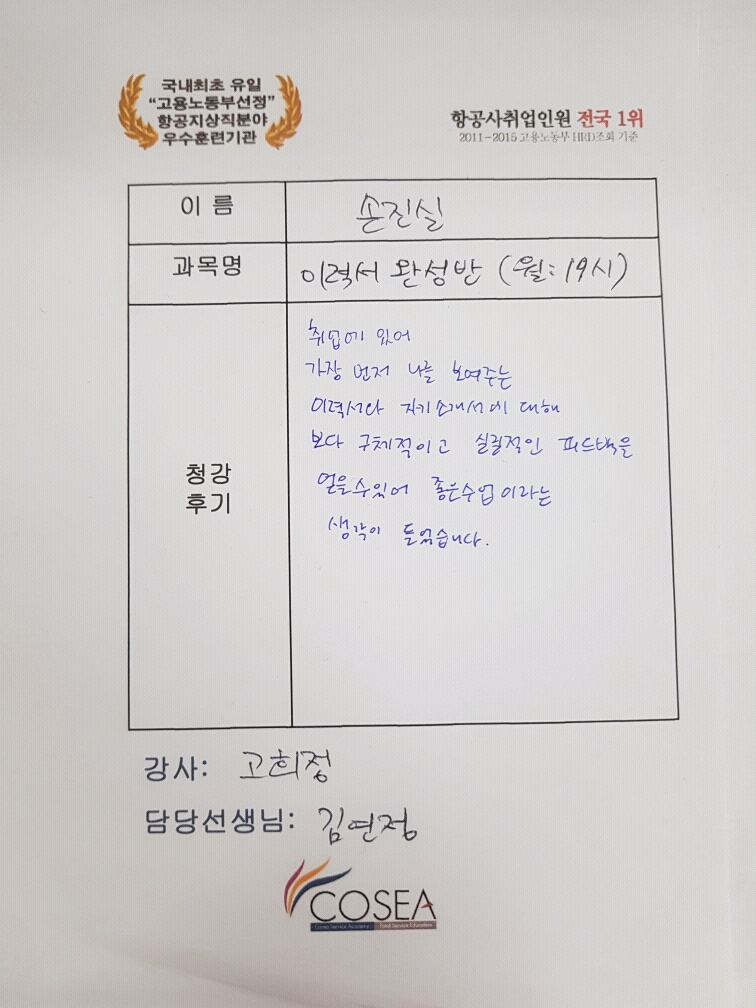 국내최초 유일
“고용노동부선정”
항공지상직분야
우수훈련기관
항공사취업인원 전국 1위
2011-2015 고용노동부 HRD조회 기준
이 름
손진실
과목명
이력서 완성반 (월: 19시)
청강
후기
취업에 있어
가장 먼저 나를 보여주는
이력서나 자기소개서에 대해
보다 구체적이고 실질적인 피드백을
얻을수있어 좋은수업이라는
생각이 들었습니다.
강사: 고희정
담당선생님: 김연정
COSEA
Cosea Service Academy Total Service Education